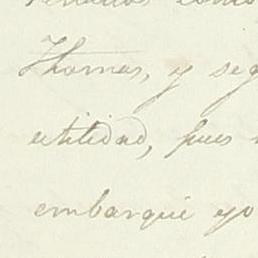 Thomas, y seg
utilidad, pues
embarqué yo